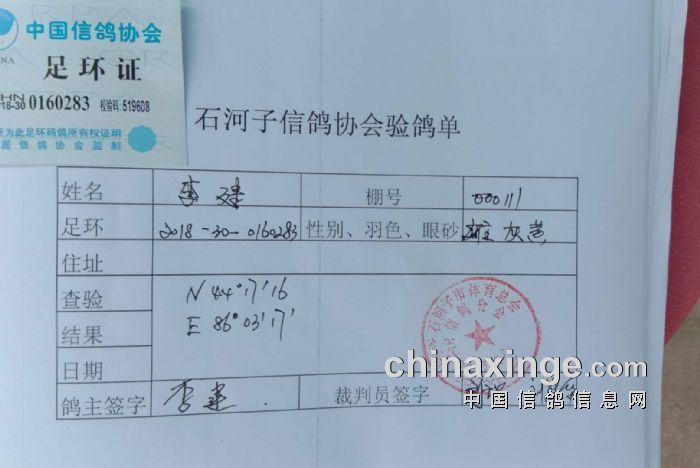 中国信鸽协会
足环证
18-30 0160283 校验码: 519608
为此足环码鸽所有权证明
国信鸽协会监制
石河子信鸽协会验鸽单
姓名 李建 棚号 000111
足环 2018-30-0160283 性别、羽色、眼砂 雄 灰 黄
住址
查验 N 44°17'16
结果 E 86°03'17'
日期
石河子市体育总会
信鸽分会
鸽主签字 李建. 裁判员签字
chinaxinge.com
中国信鸽信息网